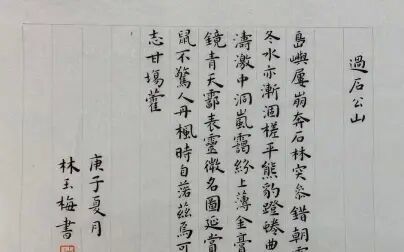 過石公山
島嶼屢崩奔石林突參錯朝霞
冬水亦漸涸槎平熊豹蹬蜷曲
濤激中洞嵐靄紛上薄金膏
鏡青天靈表靈微名圖延賞
鼠不驚人丹楓時自落茲焉可
志甘場藿
庚子夏月
林玉梅書